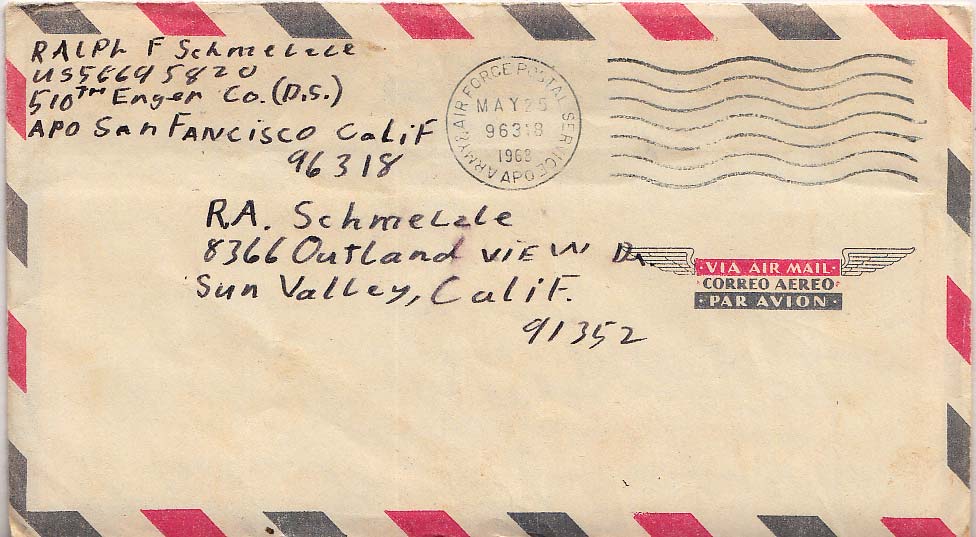 RALPh F Schmelzle
US56695820
510TH Enger Co. (D.S.)
APO San FANCISCO CaliF
96318
ARMY & AIR FORCE POSTAL SERVICE
MAY 25
96318
1968
APO
R.A. Schmelzle
8366 Outland VIEW Dr.
Sun Valley, Calif.
91352
· VIA AIR MAIL ·
CORREO AEREO
· PAR AVION ·